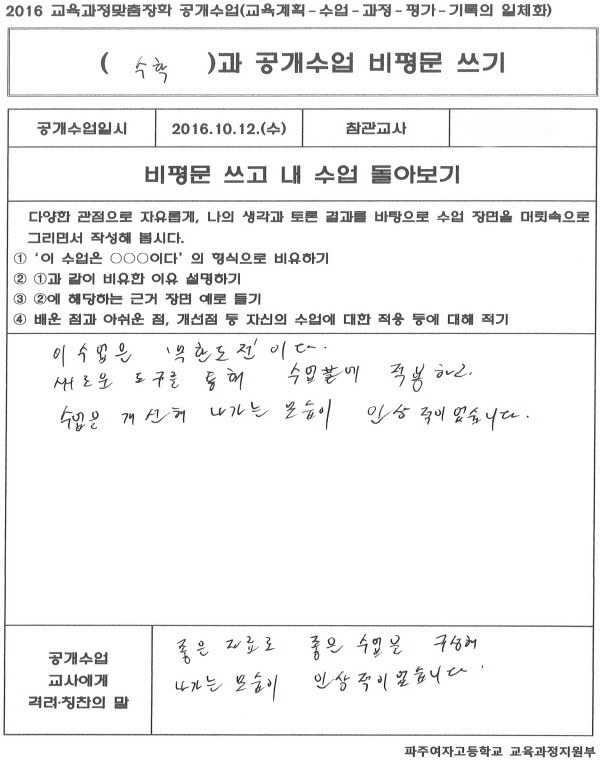 2016 교육과정맞춤장학 공개수업(교육계획-수업-과정-평가-기록의 일체화)
( 수학 )과 공개수업 비평문 쓰기
공개수업일시 2016.10.12.(수) 참관교사
비평문 쓰고 내 수업 돌아보기
다양한 관점으로 자유롭게, 나의 생각과 토론 결과를 바탕으로 수업 장면을 머릿속으로
그리면서 작성해 봅시다.
① '이 수업은 ○○○이다' 의 형식으로 비유하기
② ①과 같이 비유한 이유 설명하기
③ ②에 해당하는 근거 장면 예로 들기
④ 배운 점과 아쉬운 점, 개선점 등 자신의 수업에 대한 적용 등에 대해 적기
이 수업은 '무한도전'이다.
새로운 도구를 통해 적용하고.
수업을 개선해 나가는 모습이 인상적이었습니다.
공개수업
교사에게
격려·칭찬의 말
좋은 자료로 좋은 수업을 구성해
나가는 모습이 인상적이었습니다.
파주여자고등학교 교육과정지원부